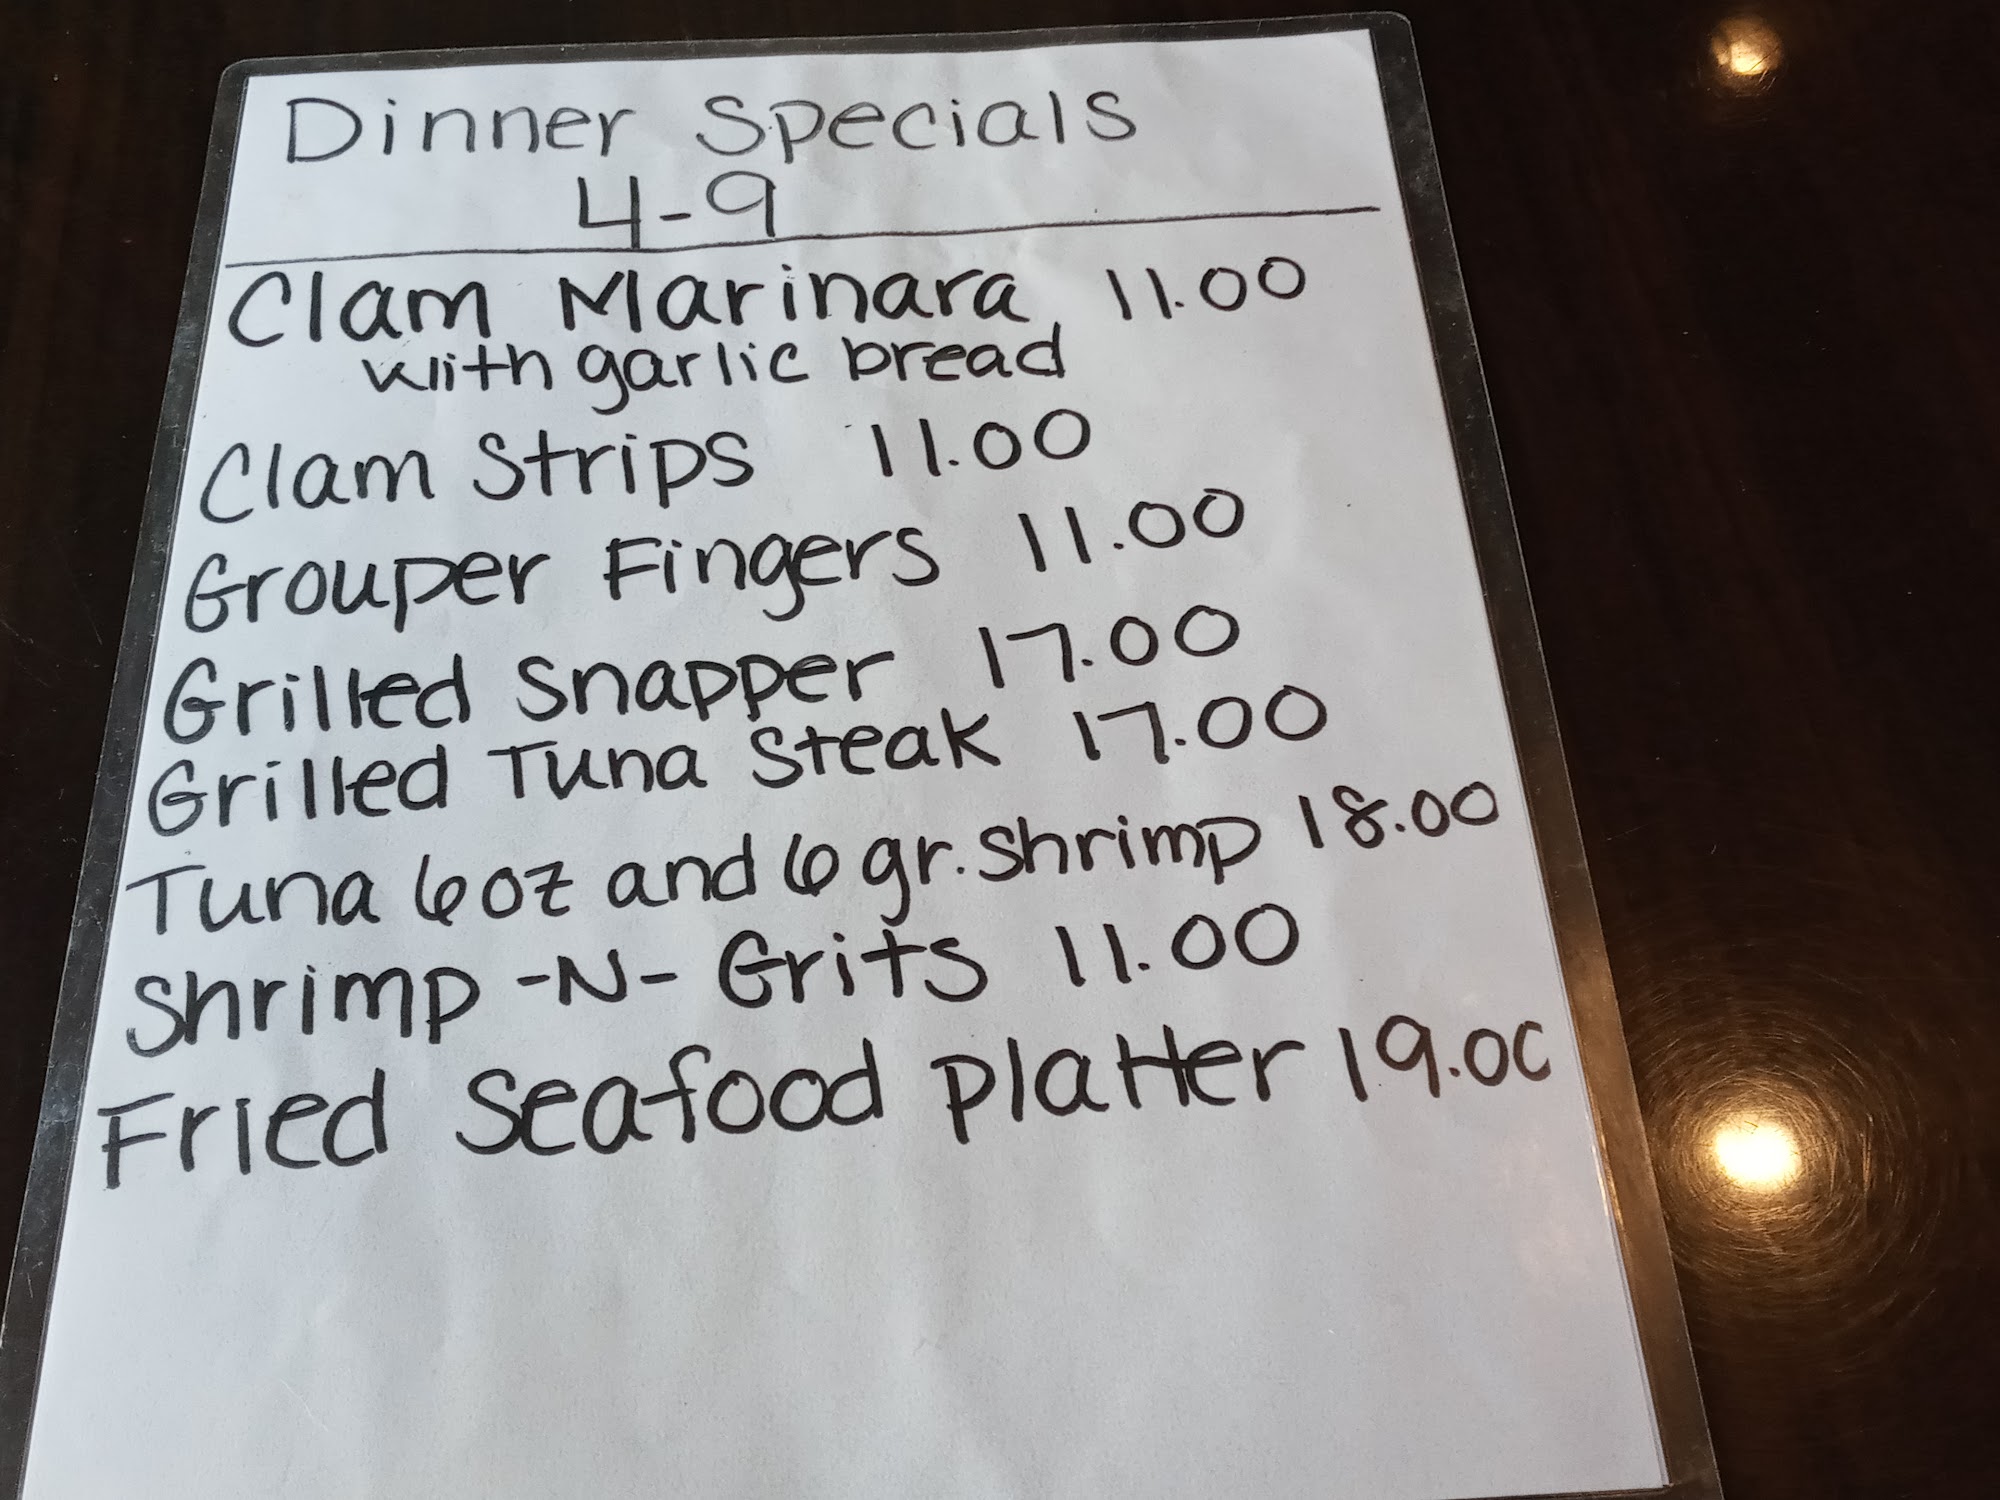 Dinner Specials
4-9
Clam Marinara 11.00
with garlic bread
Clam Strips 11.00
Grouper Fingers 11.00
Grilled Snapper 17.00
Grilled Tuna Steak 17.00
Tuna 6oz and 6 gr. shrimp 18.00
Shrimp -N- Grits 11.00
Fried Seafood Platter 19.00